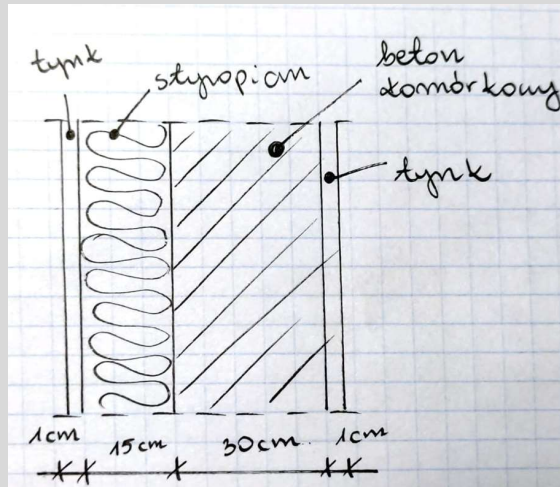 tynk
styropian
beton
komórkowy
tynk
1cm 15cm 30cm 1cm